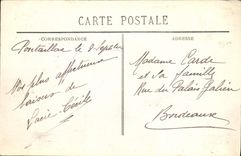 CARTE POSTALE
CORRESPONDANCE
ADRESSE
Pontaillac le 2 Sept
Nos plus affectueux
baisers de
Cécile
Madame Carde
et sa famille
Rue du Palais Galien
Bordeaux